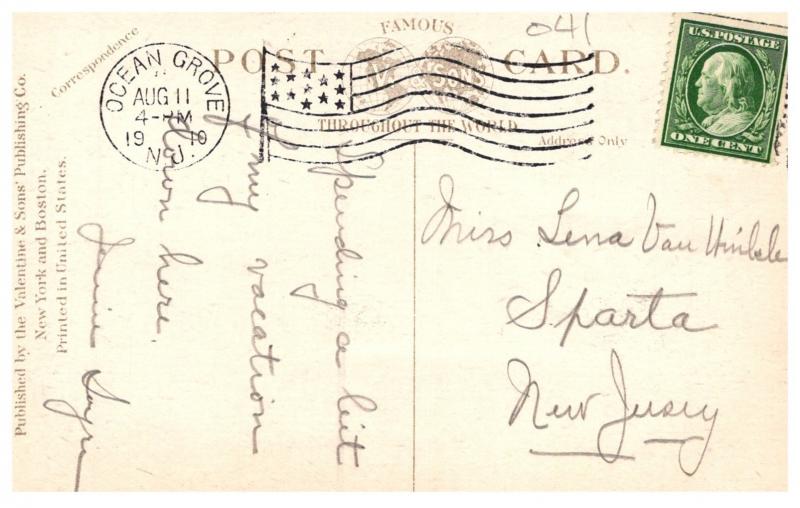 041
FAMOUS
POST CARD.
THROUGHOUT THE WORLD
Correspondence
Address Only
OCEAN GROVE
AUG 11
4-PM
19 10
N.J.
U.S. POSTAGE
ONE CENT
Published by the Valentine & Sons' Publishing Co.
New York and Boston.
Printed in United States.
Spending a bit
of my vacation
down here.
Jennie
Miss Lena Van
Sparta
New Jersey